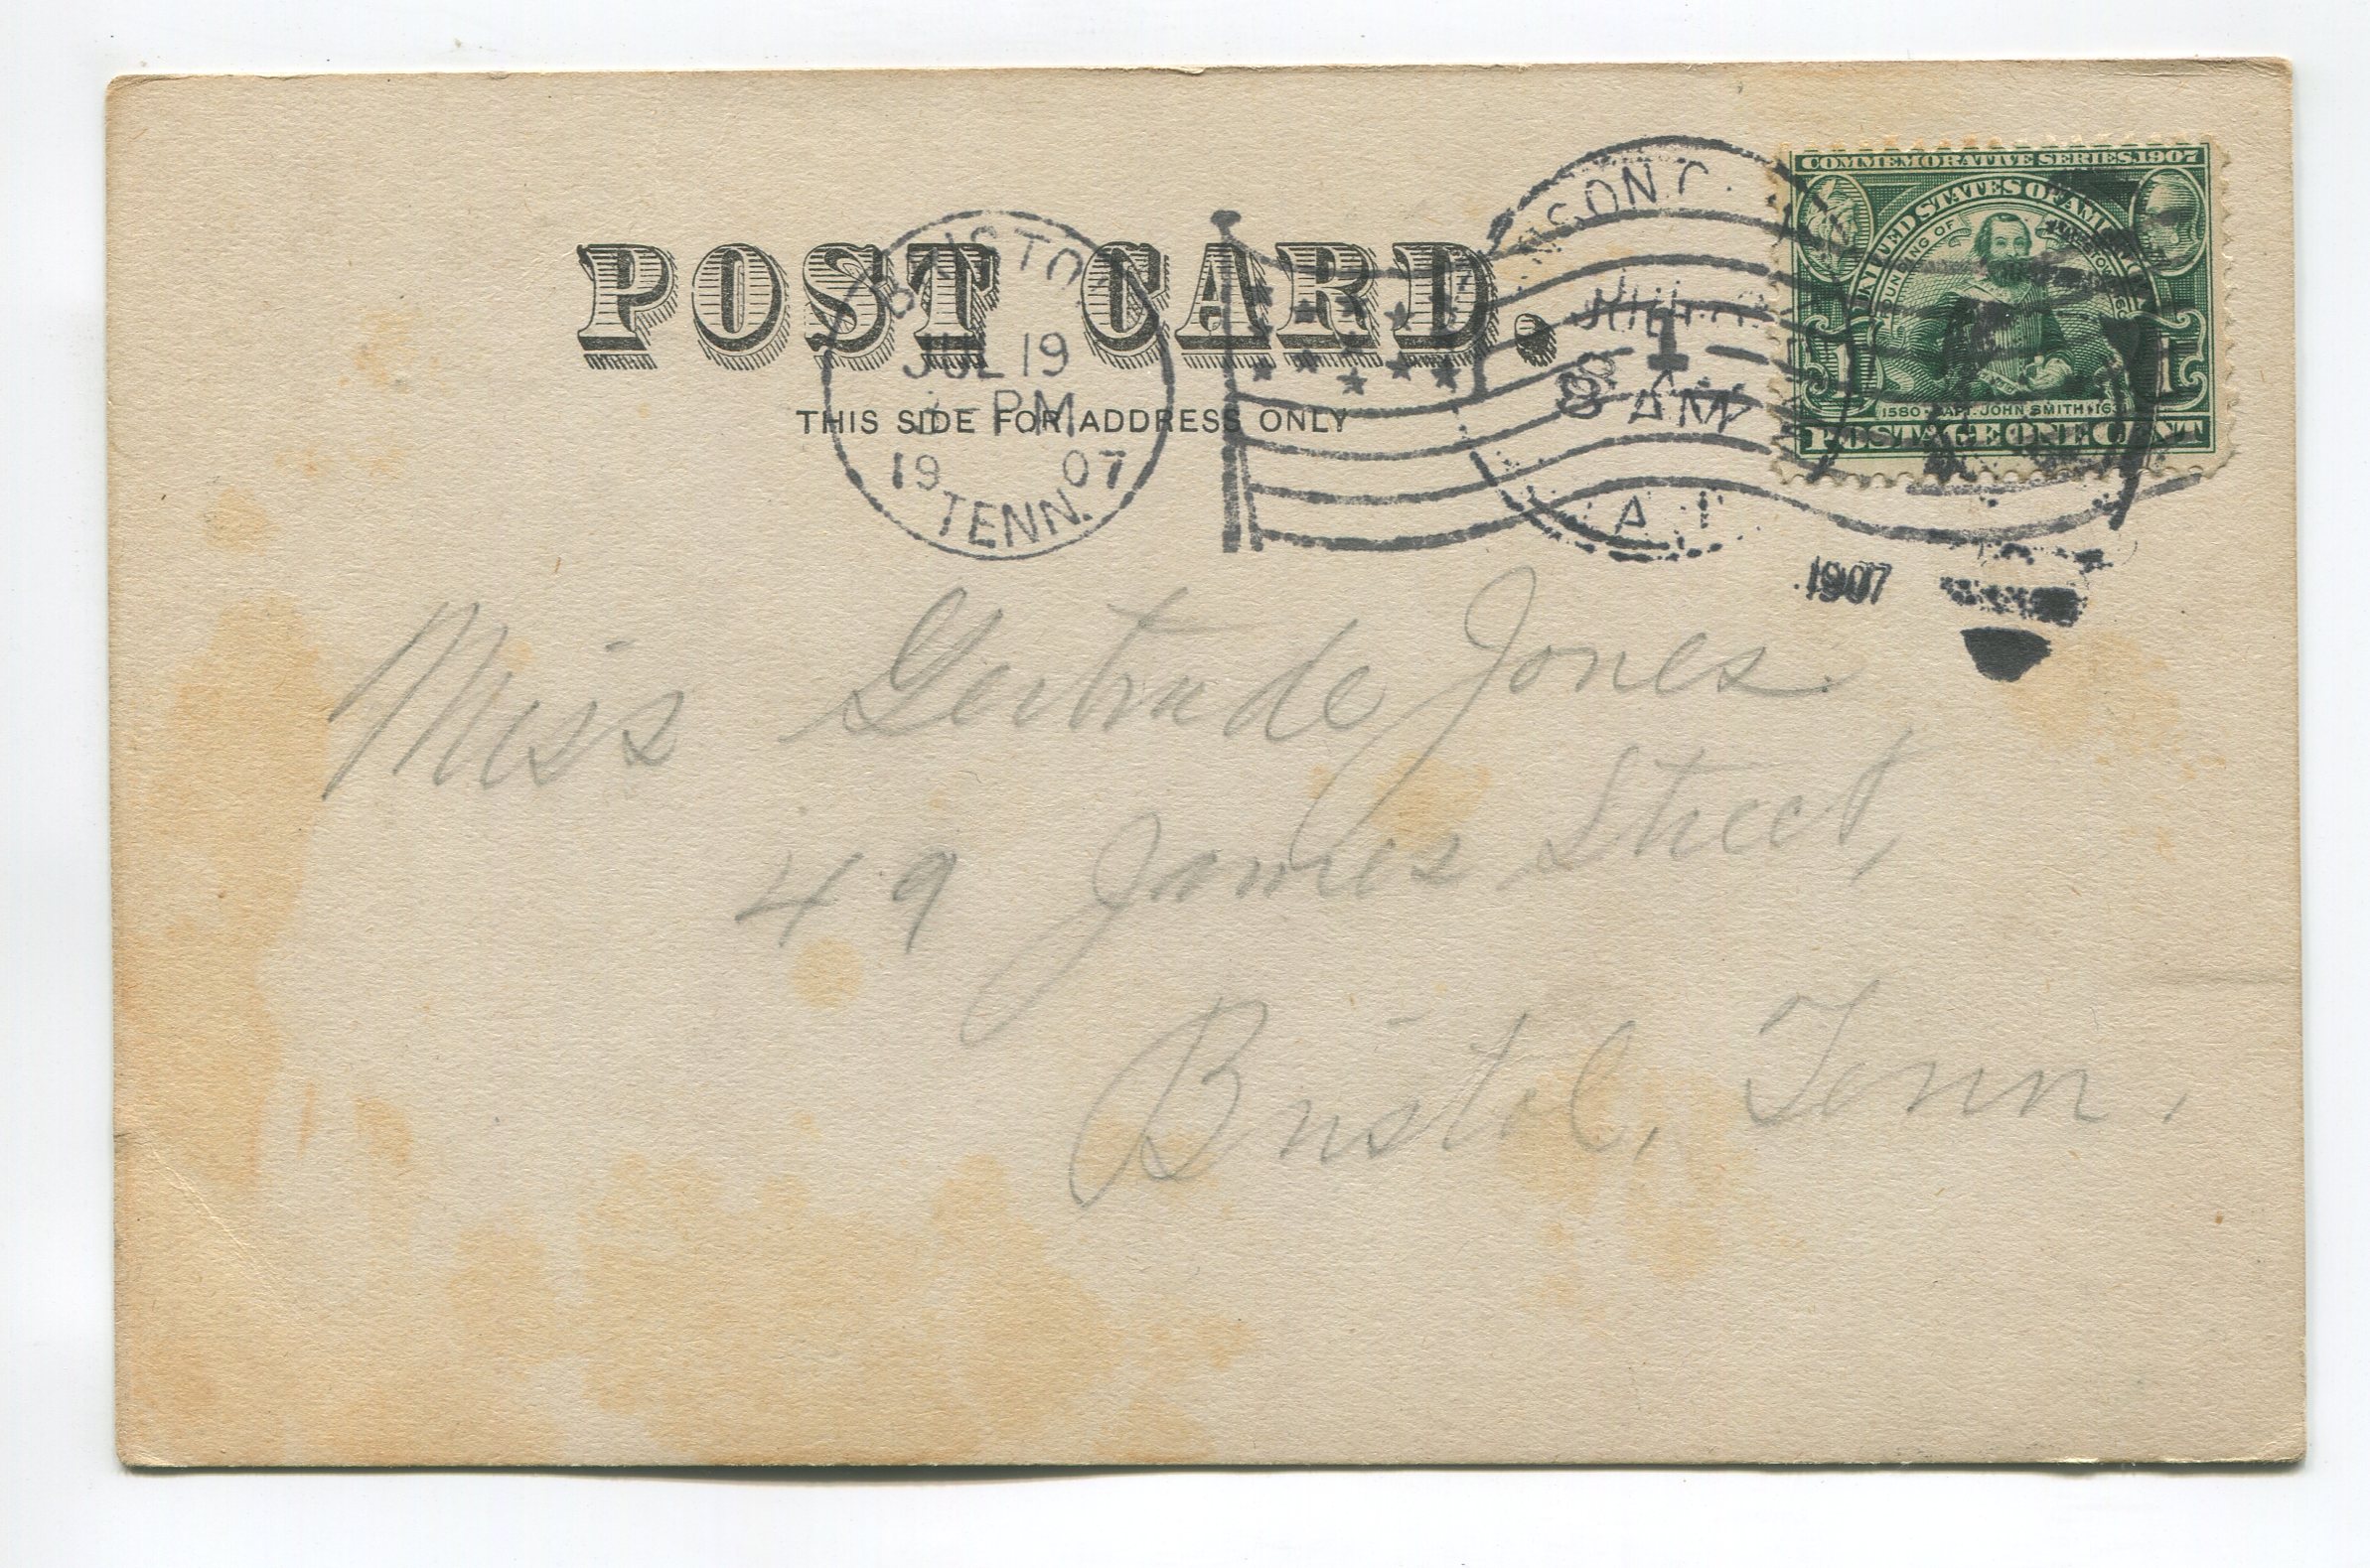 POST CARD.
THIS SIDE FOR ADDRESS ONLY
JUL 19
PM
19 07
TENN.
AM
1907
COMMEMORATIVE SERIES 1907
UNITED STATES OF AMERICA
FOUNDING OF
1 1
1580 CAPT. JOHN SMITH
POSTAGE ONE CENT
Miss Gertrude Jones.
49 James Street,
Bristol, Tenn.